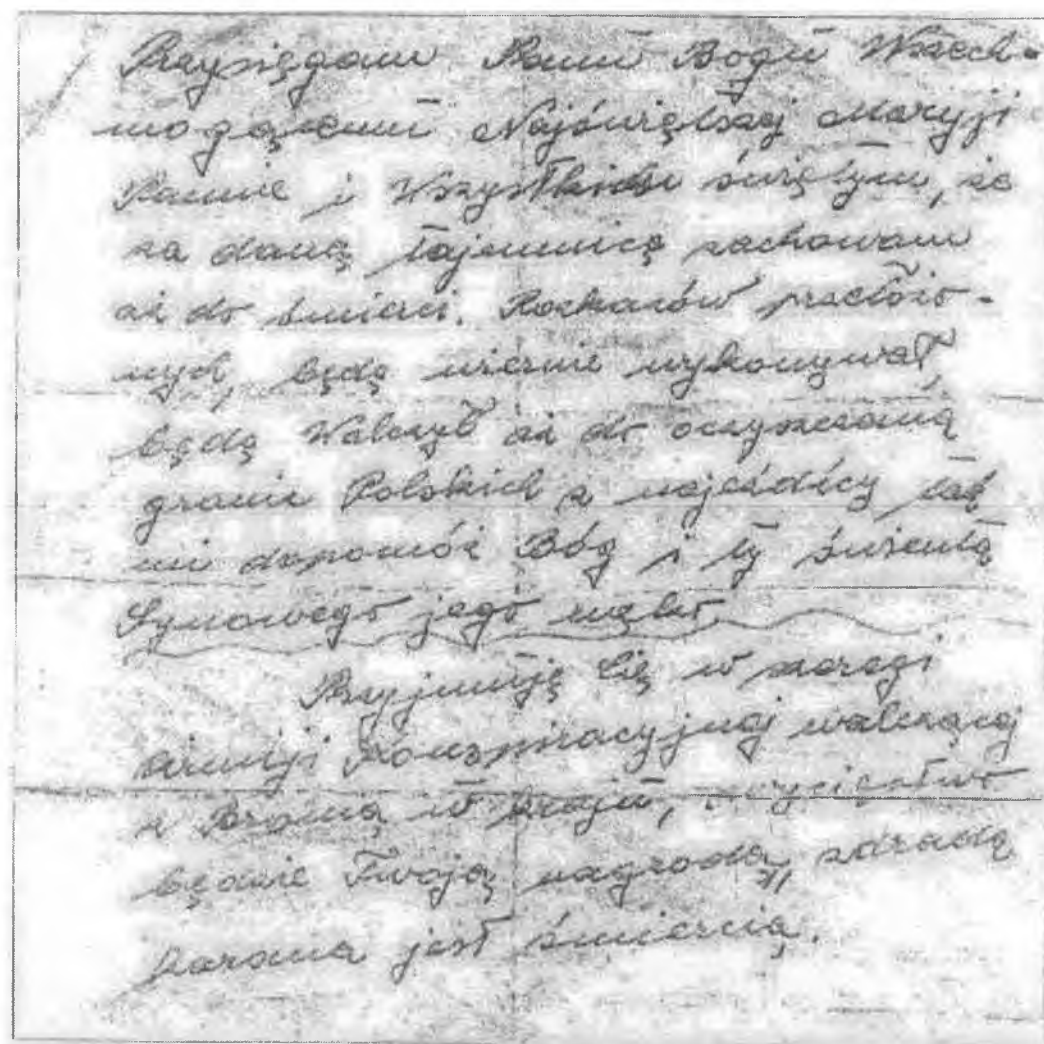 Przysięgam Panu Bogu Wszech-
mogącemu Najświętszej Maryji
Pannie i Wszystkim świętym, że
za daną tajemnicę zachowam
aż do śmierci. Rozkazów przełożo-
nych, będę wiernie wykonywał,
będę Walczył aż do oczyszczenia
granic Polskich z najeźdźcy tak
mi dopomóż Bóg i ty świenta
Synowego jego męko.
Przyjmuję Cię w szeregi
armiji Konspiracyjnej walczącej
z Bronią w kraju, zwycięstwo
będzie Twoją nagrodą, zdrada
karana jest śmiercią.